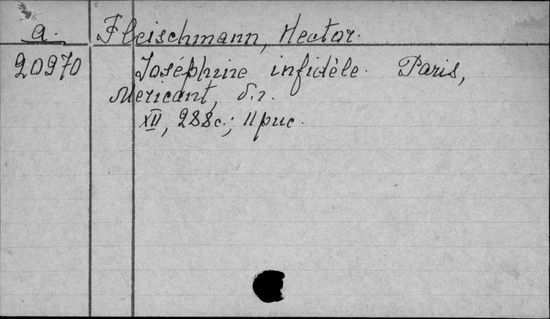 a. Fleischmann, Hector.
20970 Joséphine infidèle. Paris,
Méricant, б.г.
XII, 288с.; 11 рис.